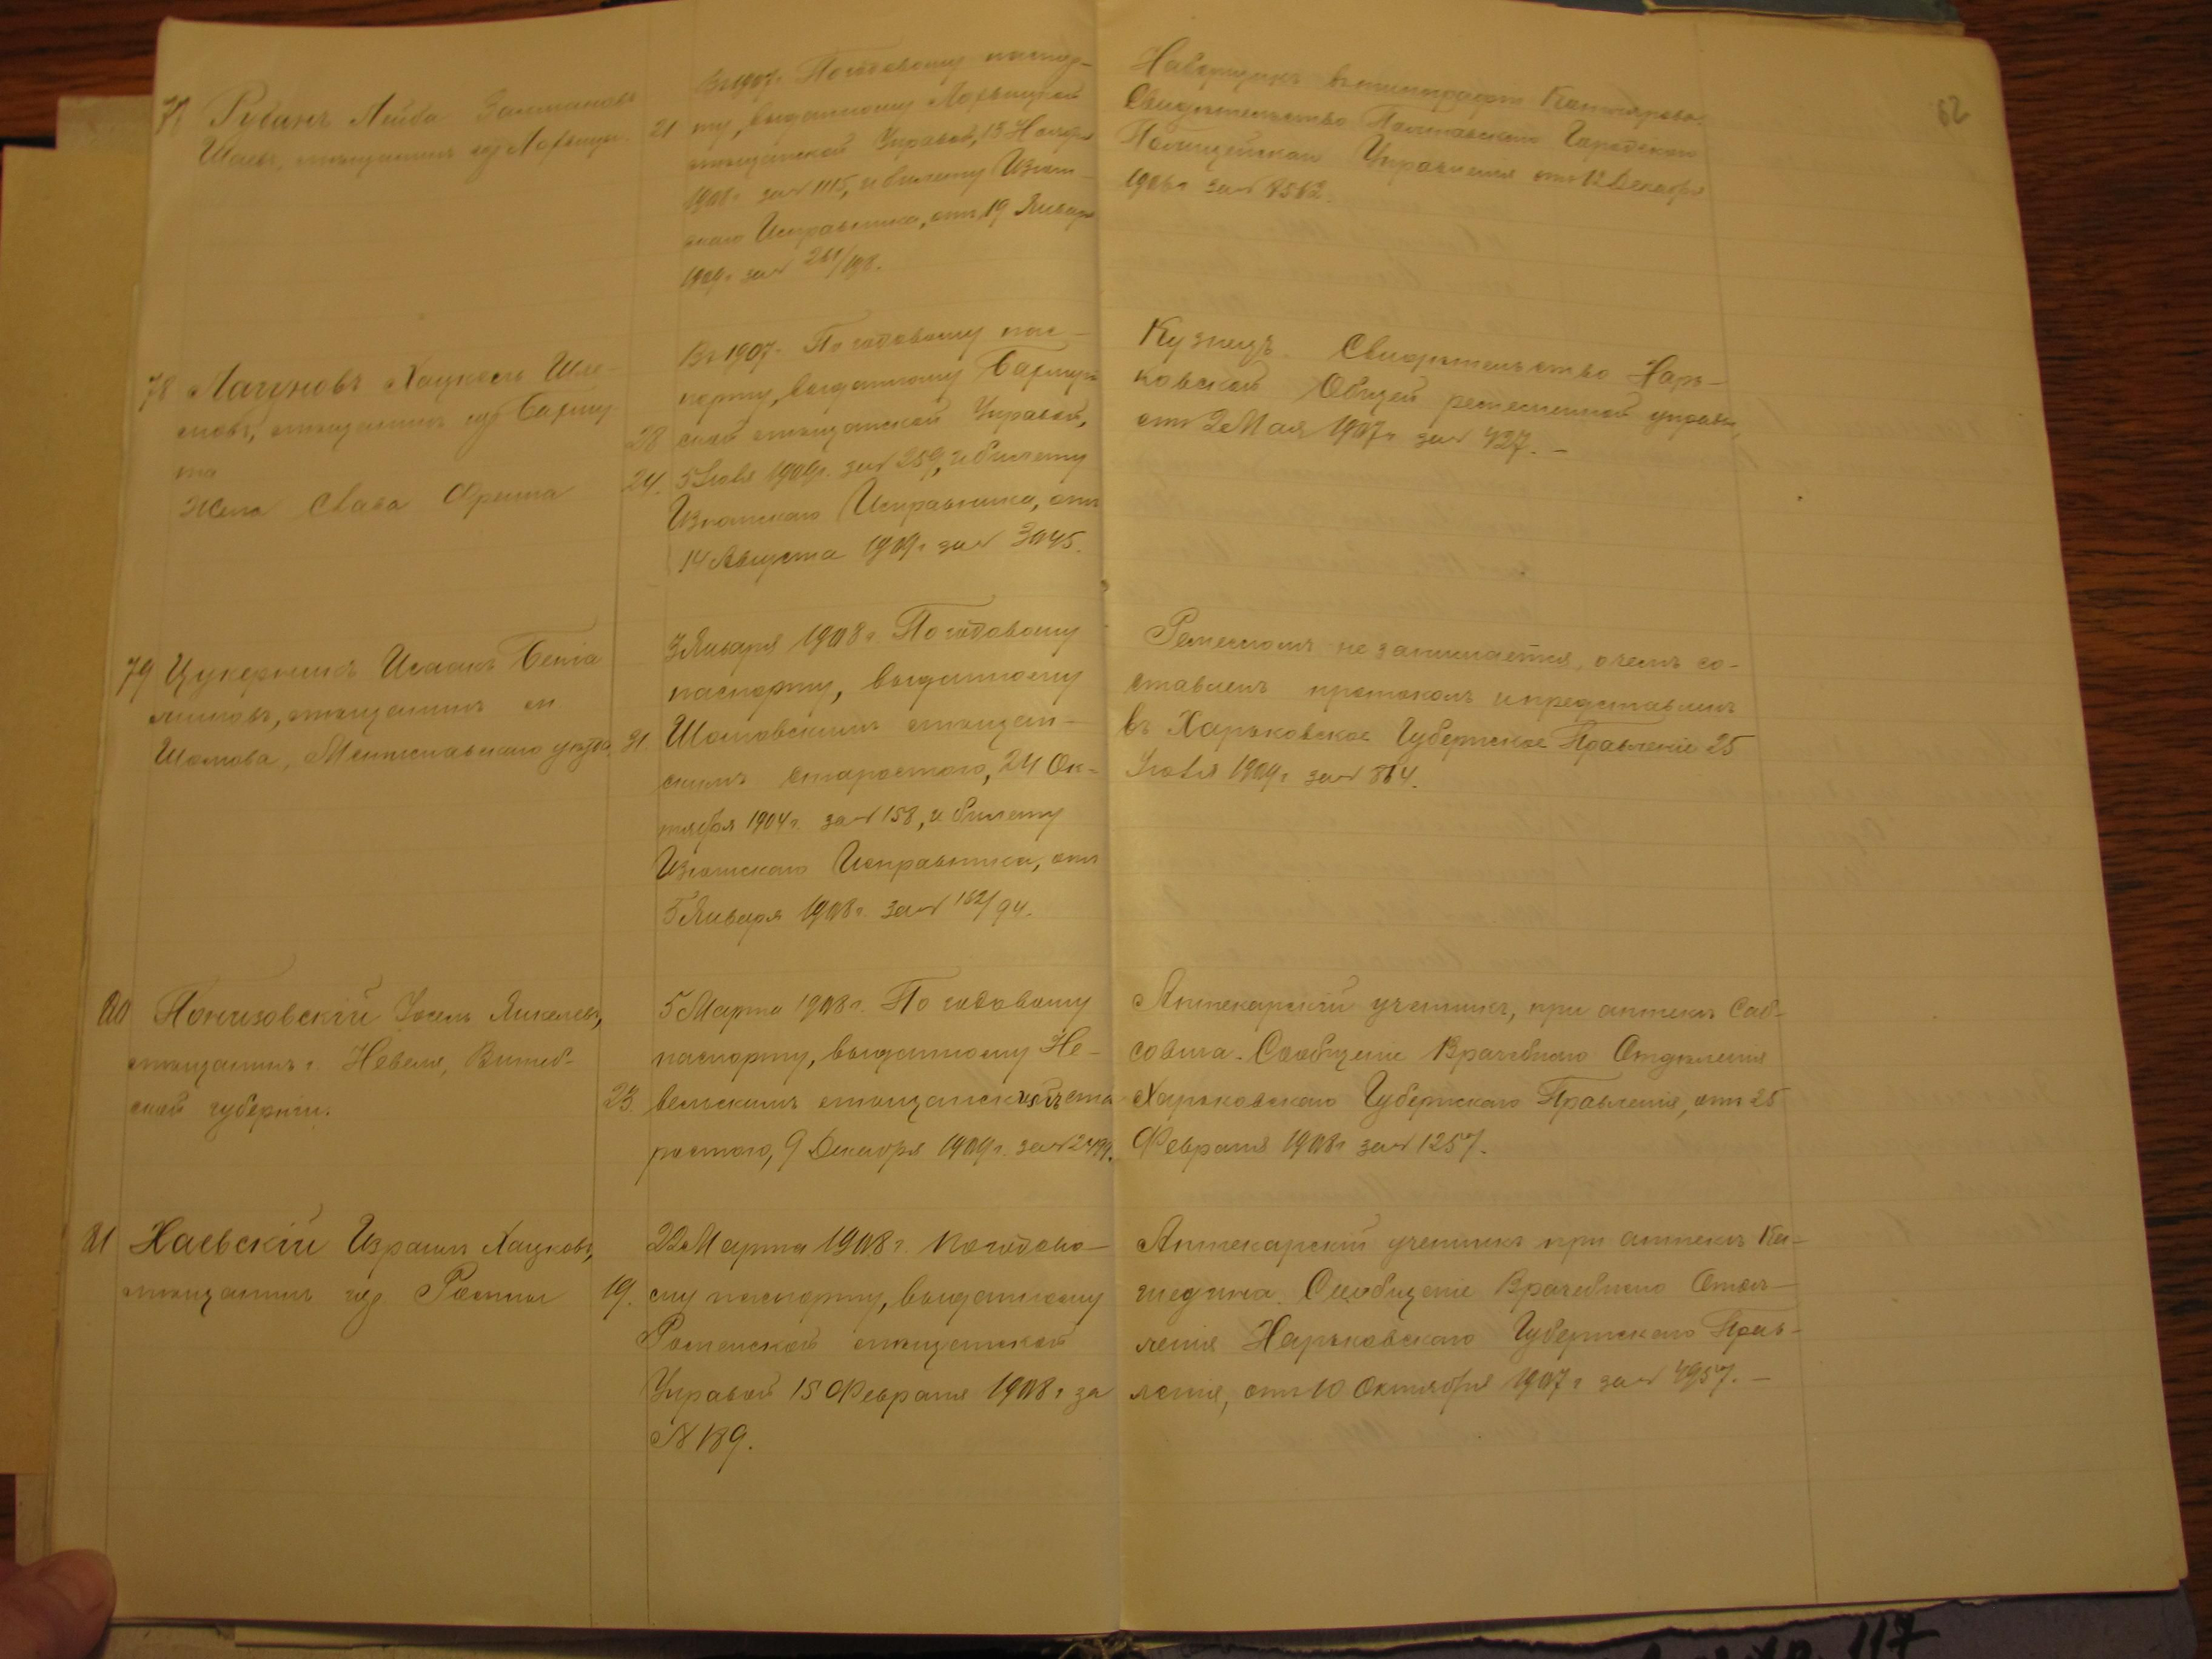 62
77 Рубинъ Лейба Залмановъ
Шаевъ, мѣщанинъ гор. Лохвицы.
21
Въ 1907г. По годовому паспор-
ту, выданному Лохвицкой
мѣщанской Управой, 13 Ноября
1908г. за № 1115, и билету Изюм-
скаго Исправника, отъ 19 Января
1909г. за №
Наборщикъ въ типографіи
Свидѣтельство Полтавскаго Городского
Полицейскаго Управленія отъ 12 Декабря
1906г за № 8562.
78 Лагуновъ Хацкель Шле-
мовъ, мѣщанинъ гор. Бахму-
та
Жена Слава Фрейма
28
24.
Въ 1907г. По годовому пас-
порту, выданному Бахмут-
ской мѣщанской Управой,
5 Іюля 1909г. за № 259, и билету
Изюмскаго Исправника, отъ
14 Августа 1909г за № 3045.
Кузнецъ. Свидѣтельство Харь-
ковской Общей ремесленной управы,
отъ 2 Мая 1907г за № 427. –
79 Цукерникъ Исаакъ Бенія
миновъ, мѣщанинъ м.
Шамова, Мстиславскаго уѣзда,
31.
3 Января 1908г. По годовому
паспорту, выданному
Шамовскимъ мѣщан-
скимъ старостою, 24 Ок-
тября 1904г. за № 158, и билету
Изюмскаго Исправника, отъ
5 Января 1908г. за № 162/94.
Ремесломъ не занимается, о чемъ со-
ставленъ протоколъ и представленъ
въ Харьковское Губернское Правленіе 25
Іюля 1909г за № 864.
80 Понизовскій Іосель Янкелевъ,
мѣщанинъ г. Невеля, Витеб-
ской губерніи.
23.
5 Марта 1908г. По годовому
паспорту, выданному Не-
вельскимъ мѣщанскимъ ста-
ростою, 9 Декабря 1909г. за № 2499.
Аптекарскій ученикъ, при аптекѣ Саб-
совича. Сообщеніе Врачебнаго Отдѣленія
Харьковскаго Губернскаго Правленія, отъ 25
Февраля 1908г за № 1257.
81 Хаевскій Израиль Хацковъ,
мѣщанинъ гор. Ромны
19.
22 Марта 1908г. По годово-
му паспорту, выданному
Роменской мѣщанской
Управой 15 Февраля 1908г за
№ 189.
Аптекарскій ученикъ при аптекѣ
Сообщеніе Врачебнаго Отдѣ-
ленія Харьковскаго Губернскаго Прав-
ленія, отъ 10 Октября 1907г за № 4957. –
117